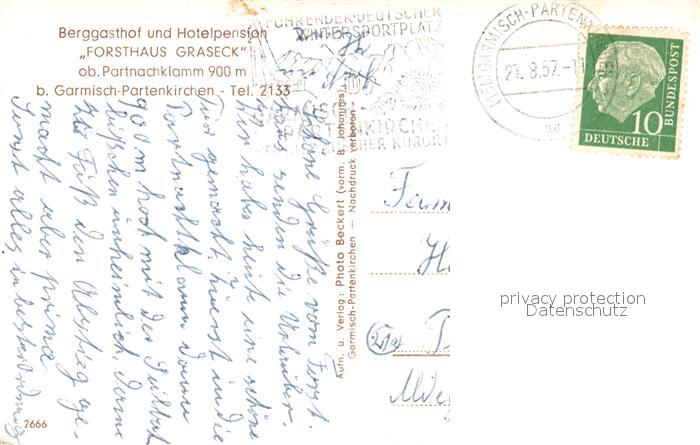 Berggasthof und Hotelpension
„FORSTHAUS GRASECK"
ob. Partnachklamm 900 m
b. Garmisch-Partenkirchen - Tel. 2133
FÜHRENDER DEUTSCHER
WINTERSPORTPLATZ
GARMISCH-PARTEN
21.8.57
10
DEUTSCHE
BUNDESPOST
Schöne Grüße vom Forst-
haus senden die Urlauber.
Wir haben heute eine schöne
Tour gemacht, zuerst in die
Partnachklamm dann
900 m hoch mit der Seilbahn
bißchen unheimlich dann
zu Fuß den Abstieg ge-
macht aber prima
Sonst alles in bester Ordnung
Aufn. u. Verlag: Photo Beckert (vorm. B. Johannes)
Garmisch-Partenkirchen — Nachdruck verboten -
2666
privacy protection
Datenschutz